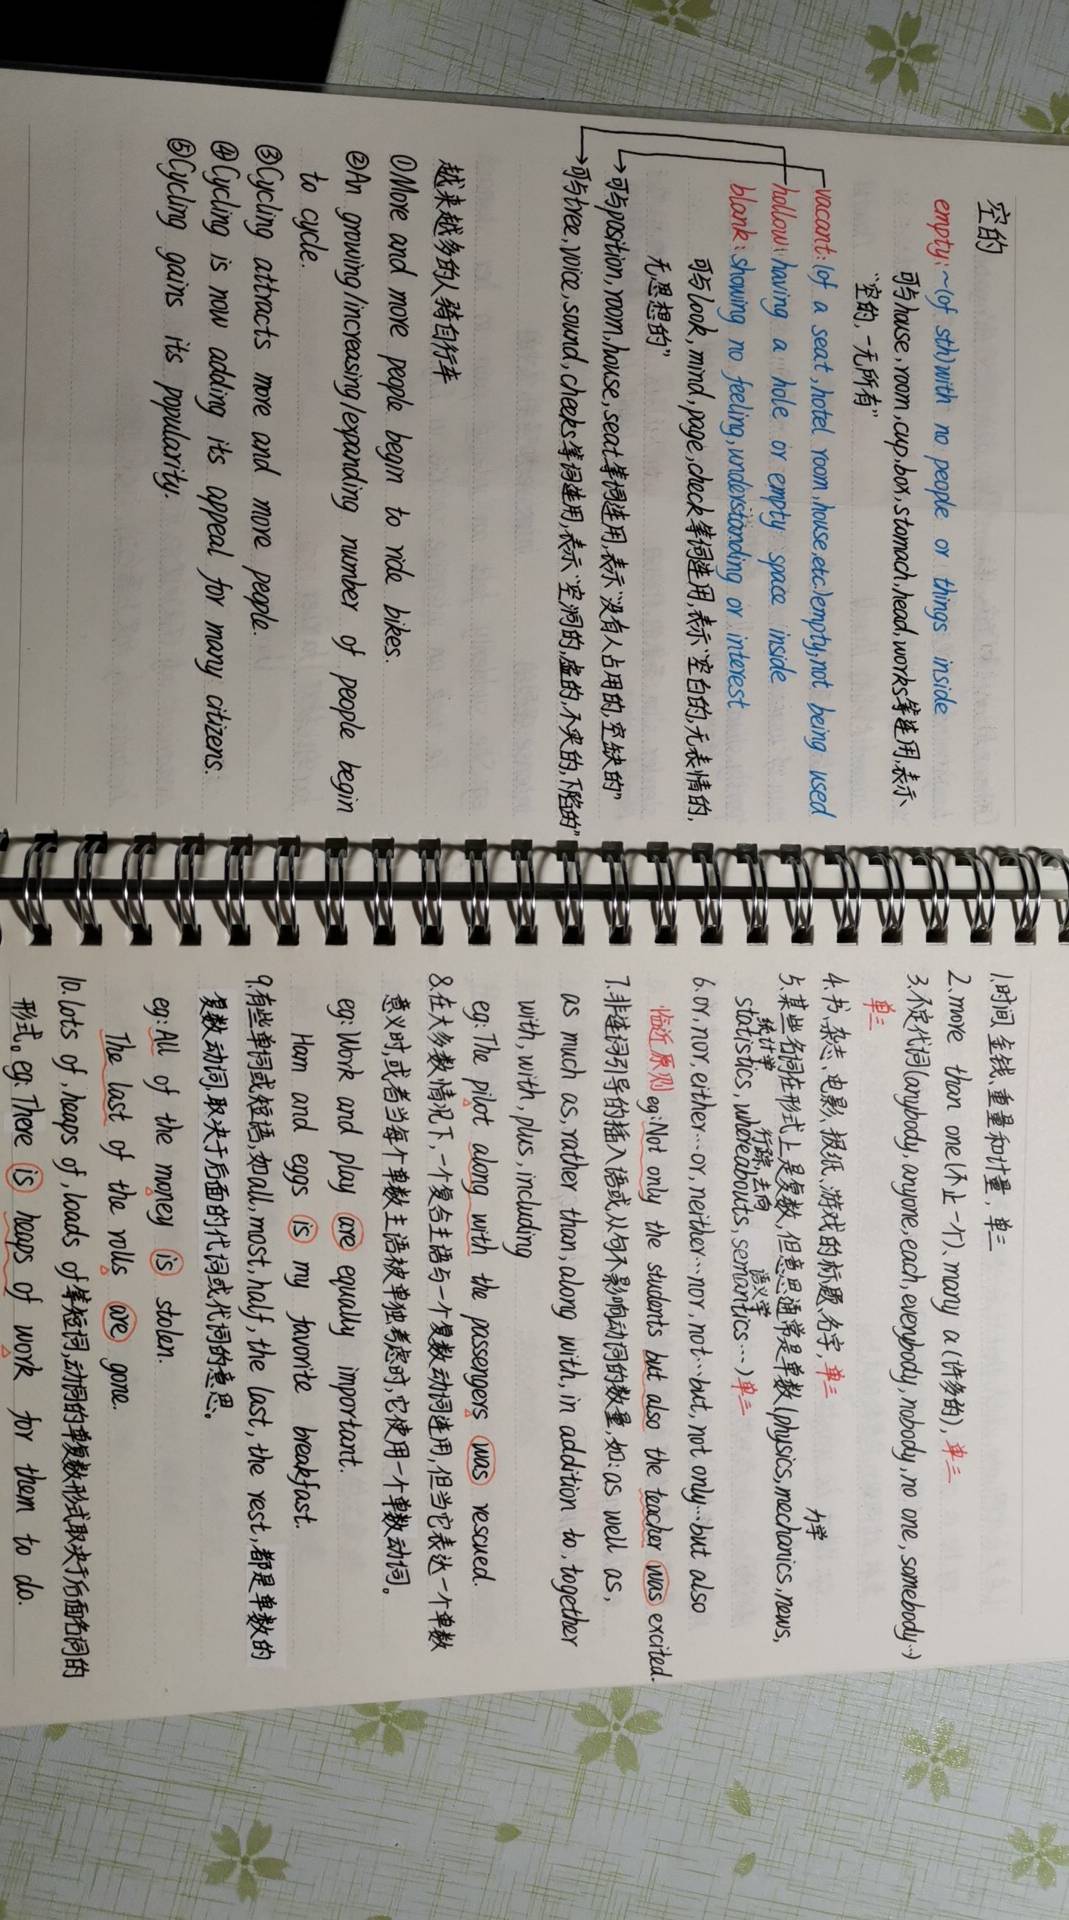 空的
empty: ~(of sth) with no people or things inside
可与house, room, cup, box, stomach, head, works等连用,表示
"空的,一无所有"
vacant: (of a seat, hotel room, house, etc.) empty, not being used
hollow: having a hole or empty space inside
blank: showing no feeling, understanding or interest
可与look, mind, page, check等词连用,表示"空白的,无表情的,
无思想的"
可与position, room, house, seat等词连用,表示"没有人占用的,空缺的"
可与tree, voice, sound, cheeks等词连用,表示"空洞的,虚的,不实的,下陷的"
越来越多的人骑自行车
①More and more people begin to ride bikes.
②An growing/increasing/expanding number of people begin
to cycle.
③Cycling attracts more and more people.
④Cycling is now adding its appeal for many citizens.
⑤Cycling gains its popularity.
1.时间,金钱,重量和计量,单三
2.more than one(不止一个)、many a(许多的),单三
3.不定代词(anybody, anyone, each, everybody, nobody, no one, somebody…)
单三
4.书、杂志、电影、报纸、游戏的标题、名字,单三
力学
5.某些名词在形式上是复数,但意思通常是单数(physics, mechanics, news,
统计学 行踪,去向 语义学
statistics, whereabouts, semantics…)单三
6.or, nor, either…or, neither…nor, not…but, not only…but also
临近原则 eg: Not only the students but also the teacher was excited.
7.非连词引导的插入语或从句不影响动词的数量,如:as well as,
as much as, rather than, along with, in addition to, together
with, with, plus, including
eg: The pilot along with the passengers was rescued.
8.在大多数情况下,一个复合主语与一个复数动词连用,但当它表达一个单数
意义时,或者当每个单数主语被单独考虑时,它使用一个单数动词。
eg: Work and play are equally important.
Ham and eggs is my favorite breakfast.
9.有些单词或短语,如all, most, half, the last, the rest,都是单数的
复数动词,取决于后面的代词或代词的意思。
eg: All of the money is stolen.
The last of the rolls are gone.
10.lots of, heaps of, loads of等短词,动词的单复数形式取决于后面名词的
形式。eg: There is heaps of work for them to do.